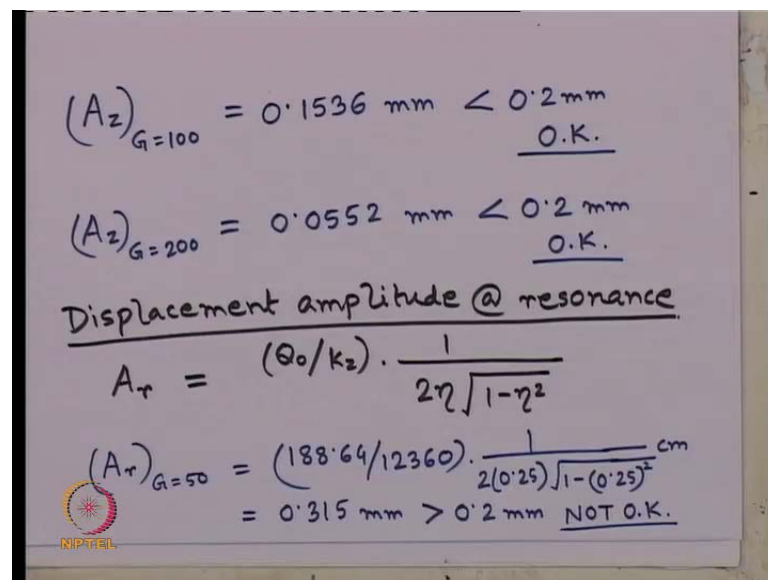 (Az)G=100 = 0.1536 mm < 0.2mm
O.K.
(Az)G=200 = 0.0552 mm < 0.2 mm
O.K.
Displacement amplitude @ resonance
Ar = (Q0/kz) . 1 / 2η√1-η²
(Ar)G=50 = (188.64/12360). 1 / 2(0.25)√1-(0.25)² cm
= 0.315 mm > 0.2 mm NOT O.K.
NPTEL